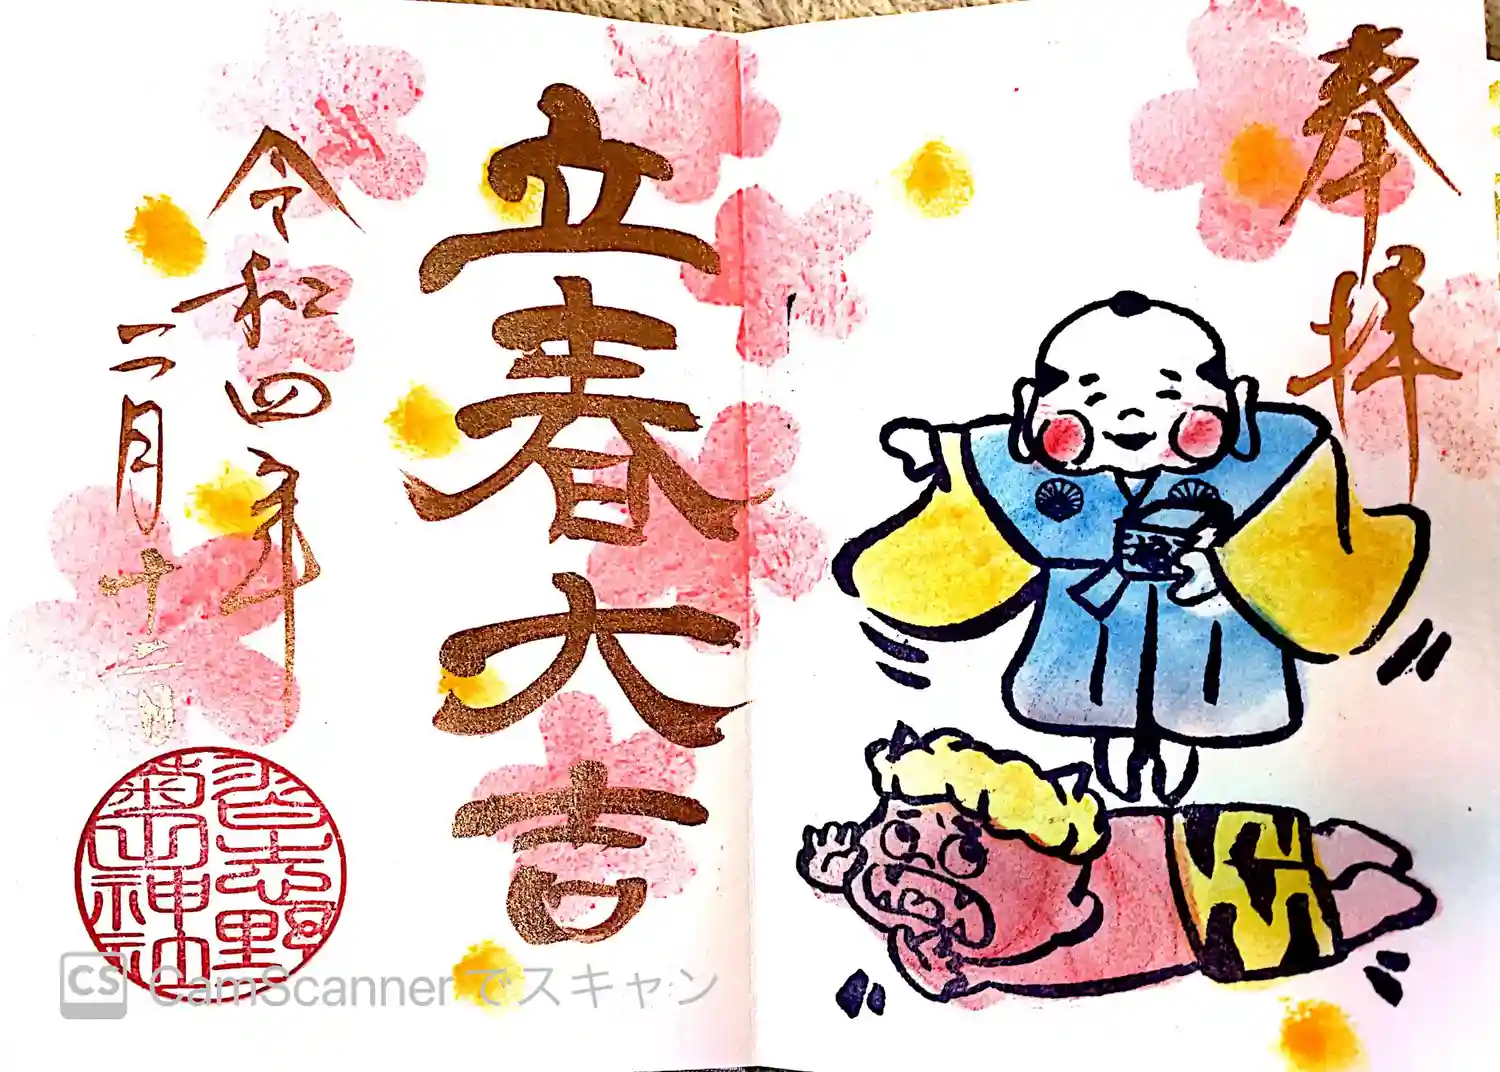 奉拝
立春大吉
令和四年
二月十二日
登志野
菊山神社
CS CamScannerでスキャン